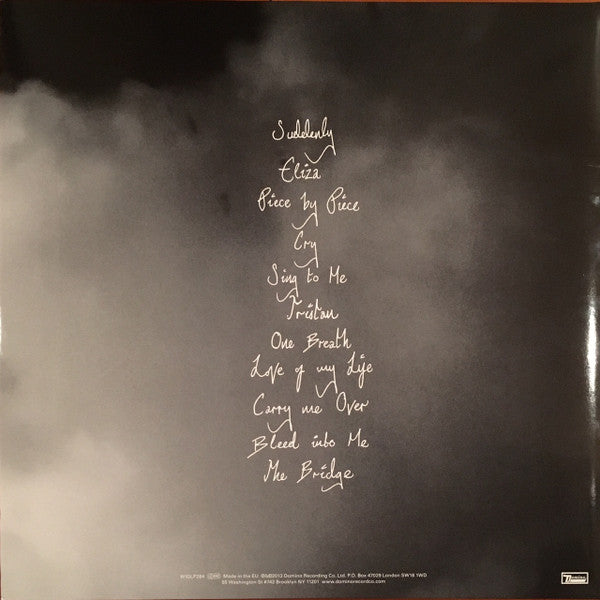 Suddenly
Eliza
Piece by Piece
Cry
Sing to Me
Tristan
One Breath
Love of my Life
Carry me Over
Bleed into Me
The Bridge
WIGLP284 Made in the EU ℗&©2013 Domino Recording Co. Ltd. P.O. Box 47029 London SW18 1WD
55 Washington St #742 Brooklyn NY 11201 www.dominorecordco.com
Domino